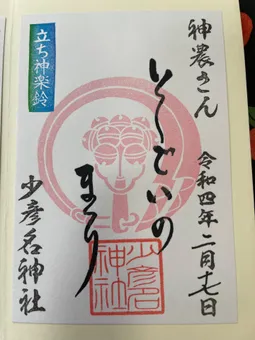 神農さん
令和四年二月十七日
としごいの
まつり
立ち神楽鈴
少彦名神社
少彦名
神社